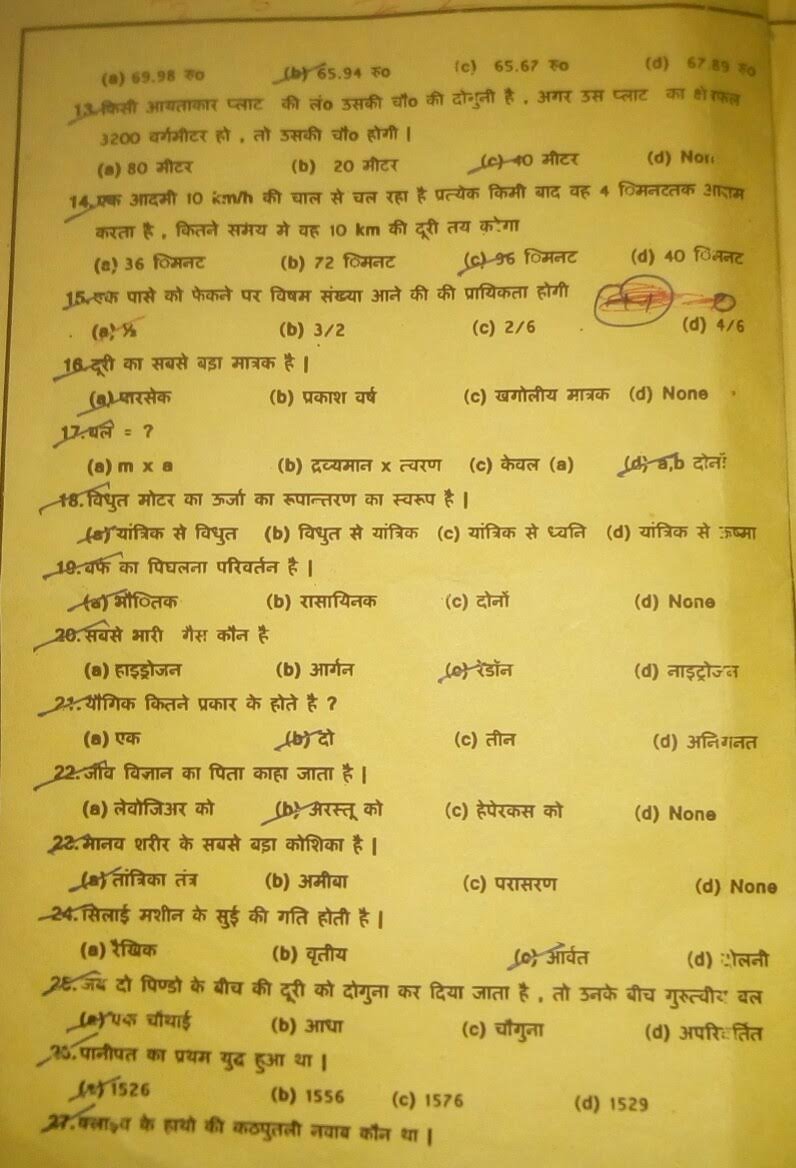 (a) 69.98 रु० (b) 65.94 रु० (c) 65.67 रु० (d) 67.89 रु०
13. किसी आयताकार प्लाट की लं० उसकी चौ० की दोगुनी है , अगर उस प्लाट का क्षेरफल
3200 वर्गमीटर हो , तो उसकी चौ० होगी |
(a) 80 मीटर (b) 20 मीटर (c) 40 मीटर (d) Non
14. एक आदमी 10 km/h की चाल से चल रहा है प्रत्येक किमी बाद वह 4 िमनटतक आराम
करता है , कितने समय मे वह 10 km की दूरी तय करेगा
(a) 36 िमनट (b) 72 िमनट (c) 96 िमनट (d) 40 िमनट
15. एक पासे को फेकने पर विषम संख्या आने की की प्रायिकता होगी
(a) ½ (b) 3/2 (c) 2/6 (d) 4/6
16. दूरी का सबसे बड़ा मात्रक है |
(a) पारसेक (b) प्रकाश वर्ष (c) खगोलीय मात्रक (d) None
17. बल = ?
(a) m x a (b) द्रव्यमान x त्वरण (c) केवल (a) (d) a,b दोनों
18. विधुत मोटर का ऊर्जा का रूपान्तरण का स्वरूप है |
(a) यांत्रिक से विधुत (b) विधुत से यांत्रिक (c) यांत्रिक से ध्वनि (d) यांत्रिक से ऊष्मा
19. बर्फ का पिघलना परिवर्तन है |
(a) भौितक (b) रासायिनक (c) दोनों (d) None
20. सबसे भारी गैस कौन है
(a) हाइड्रोजन (b) आर्गन (c) रेडॉन (d) नाइट्रोजन
21. यौगिक कितने प्रकार के होते है ?
(a) एक (b) दो (c) तीन (d) अनिगनत
22. जीव विज्ञान का पिता काहा जाता है |
(a) लेवोजिअर को (b) अरस्तू को (c) हेपेरकस को (d) None
22. मानव शरीर के सबसे बड़ा कोशिका है |
(a) तांत्रिका तंत्र (b) अमीबा (c) परासरण (d) None
24. सिलाई मशीन के सुई की गति होती है |
(a) रैखिक (b) वृतीय (c) आर्वत (d) दोलनी
25. जब दो पिण्डो के बीच की दूरी को दोगुना कर दिया जाता है , तो उनके बीच गुरुत्वीय बल
(a) एक चौथाई (b) आधा (c) चौगुना (d) अपरिवर्तित
26. पानीपत का प्रथम युद्ध हुआ था |
(a) 1526 (b) 1556 (c) 1576 (d) 1529
27. क्लाइव के हाथो की कठपुतली नवाब कौन था |